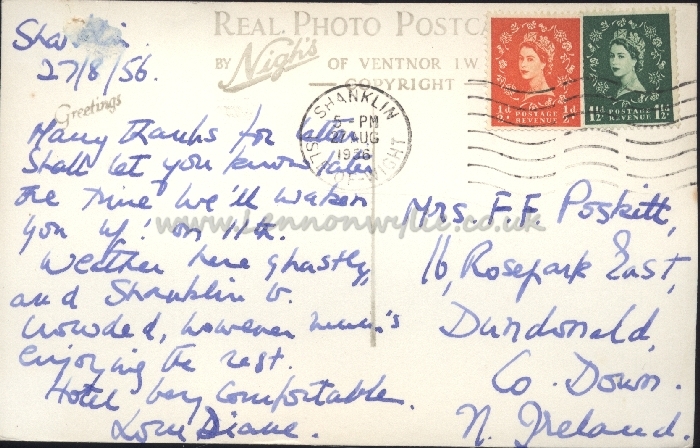 Shanklin.
27/8/56.
REAL PHOTO POSTCA
BY Nigh's OF VENTNOR I.W.
COPYRIGHT
Greetings
SHANKLIN
5 - PM
27 AUG
1956
ISLE OF WIGHT
½d POSTAGE REVENUE ½d
1½d POSTAGE REVENUE 1½d
Many thanks for letter
Shall let you know later
the time we'll waken
you up! on 11th.
Weather here ghastly,
and Shanklin v.
crowded, however Mum's
enjoying the rest.
Hotel very comfortable.
Love Diane.
Mrs. F. F. Poskitt,
16, Rosepark East,
Dundonald,
Co. Down.
N. Ireland.
www.lennonwylie.co.uk